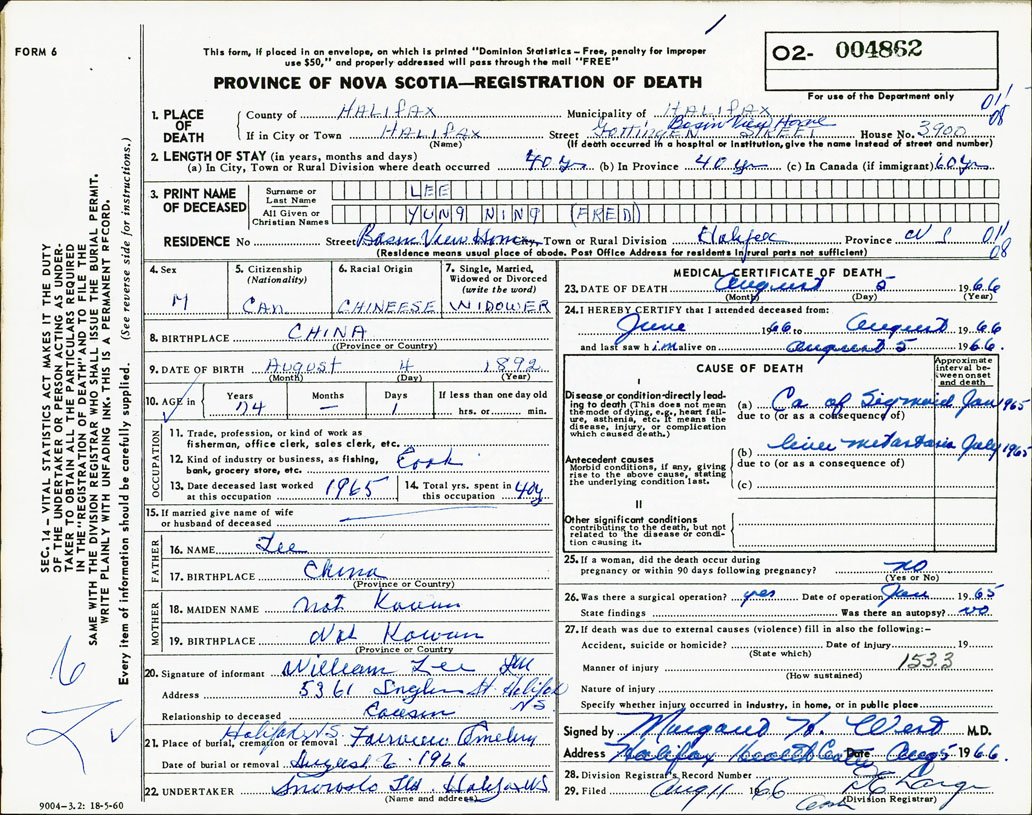 FORM 6
This form, if placed in an envelope, on which is printed "Dominion Statistics – Free, penalty for improper
use $50," and properly addressed will pass through the mail "FREE"
02- 004862
For use of the Department only
PROVINCE OF NOVA SCOTIA—REGISTRATION OF DEATH
011
08
1. PLACE OF DEATH
County of HALIFAX Municipality of HALIFAX
Basin View Home
If in City or Town HALIFAX Street Gottingen STREET House No. 3900
(Name) (If death occurred in a hospital or institution, give the name instead of street and number)
2. LENGTH OF STAY (in years, months and days)
(a) In City, Town or Rural Division where death occurred 40 yr (b) In Province 40 yr (c) In Canada (if immigrant) 60 yr
3. PRINT NAME OF DECEASED
Surname or Last Name LEE
All Given or Christian Names YUNG NING (FRED)
RESIDENCE No Street Basin View Home City, Town or Rural Division Halifax Province N S 011
08
(Residence means usual place of abode. Post Office Address for residents in rural parts not sufficient)
4. Sex M
5. Citizenship (Nationality) CAN
6. Racial Origin CHINEESE
7. Single, Married, Widowed or Divorced (write the word) WIDOWER
8. BIRTHPLACE CHINA
(Province or Country)
9. DATE OF BIRTH AUGUST 4 1892
(Month) (Day) (Year)
10. AGE in Years 74 Months — Days 1 If less than one day old hrs. or min.
OCCUPATION
11. Trade, profession, or kind of work as
fisherman, office clerk, sales clerk, etc.
12. Kind of industry or business, as fishing,
bank, grocery store, etc. Cook
13. Date deceased last worked at this occupation 1965
14. Total yrs. spent in this occupation 40y
15. If married give name of wife
or husband of deceased
FATHER
16. NAME Lee
17. BIRTHPLACE China
(Province or Country)
MOTHER
18. MAIDEN NAME Not Kowun
19. BIRTHPLACE Not Kowun
(Province or Country)
20. Signature of informant William Lee
Address 5361 Inglis St Halifax
NS
Relationship to deceased Cousin
Halifax N.S.
21. Place of burial, cremation or removal Fairview Cemetery
Date of burial or removal August 6 1966
22. UNDERTAKER Snows Ltd. Halifax NS
(Name and address)
MEDICAL CERTIFICATE OF DEATH
23. DATE OF DEATH August 5 1966
(Month) (Day) (Year)
24. I HEREBY CERTIFY that I attended deceased from:
June 1966 to August 1966
and last saw him alive on August 5 1966.
CAUSE OF DEATH
Approximate interval between onset and death
I
Disease or condition directly leading to death (This does not mean the mode of dying, e.g., heart failure, asthenia, etc. It means the disease, injury, or complication which caused death.)
(a) Ca of Sigmoid Jan 1965
due to (or as a consequence of)
Antecedent causes
Morbid conditions, if any, giving rise to the above cause, stating the underlying condition last.
(b) liver metastasis July 1965
due to (or as a consequence of)
(c)
II
Other significant conditions
contributing to the death, but not related to the disease or condition causing it.
25. If a woman, did the death occur during
pregnancy or within 90 days following pregnancy? no
(Yes or No)
26. Was there a surgical operation? yes Date of operation Jan 1965
State findings Was there an autopsy? no
27. If death was due to external causes (violence) fill in also the following:–
Accident, suicide or homicide? Date of injury 19
(State which)
Manner of injury 153.3
(How sustained)
Nature of injury
Specify whether injury occurred in industry, in home, or in public place
Signed by Margaret K. West M.D.
Address Halifax Health Centre Date Aug 5 1966.
28. Division Registrar's Record Number
29. Filed Aug 11 1966
(Division Registrar)
SEC. 14 – VITAL STATISTICS ACT MAKES IT THE DUTY
OF THE UNDERTAKER OR PERSON ACTING AS UNDER-
TAKER TO OBTAIN ALL THE PARTICULARS REQUIRED
IN THE "REGISTRATION OF DEATH" AND TO FILE THE
SAME WITH THE DIVISION REGISTRAR WHO SHALL ISSUE THE BURIAL PERMIT.
WRITE PLAINLY WITH UNFADING INK. THIS IS A PERMANENT RECORD.
Every item of information should be carefully supplied. (See reverse side for instructions.)
6
9004–3.2: 18-5-60